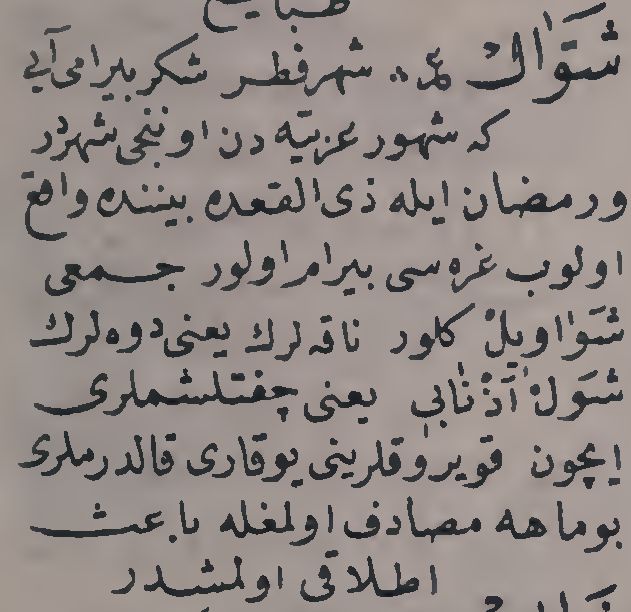 شَوَّال عر‌. شهر فطر شكر بيرامى آيى
كه شهور عربيه دن اوننجى شهردر
ورمضان ايله ذى القعده بيننده واقع
اولوب غره سى بيرام اولور جمعى
شَوَاوِيلْ كلور ناقه لرك يعنى دوه لرك
شَوَلَانِ أَذْنَابِى يعنى چفتلشملرى
ايچون قويروقلرينى يوقارى قالدرملرى
بو ماهه مصادف اولمغله باعث
اطلاقى اولمشدر